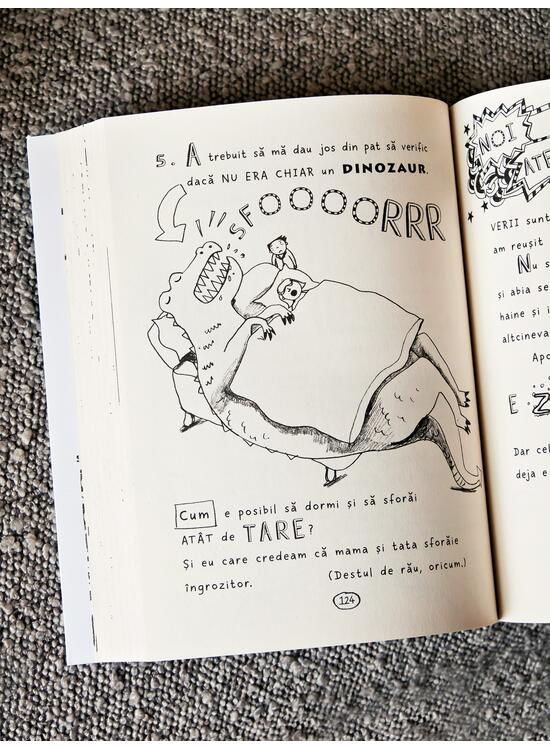 5. A trebuit să mă dau jos din pat să verific
dacă NU ERA CHIAR un DINOZAUR.
SFOOOOORRR
Cum e posibil să dormi și să sforăi
ATÂT de TARE?
Și eu care credeam că mama și tata sforăie
îngrozitor. (Destul de rău, oricum.)
124
NOI
VERII sunt
am reușit
Nu s
și abia se
haine și i
altcineva
Apo
E Z
Dar cel
deja e